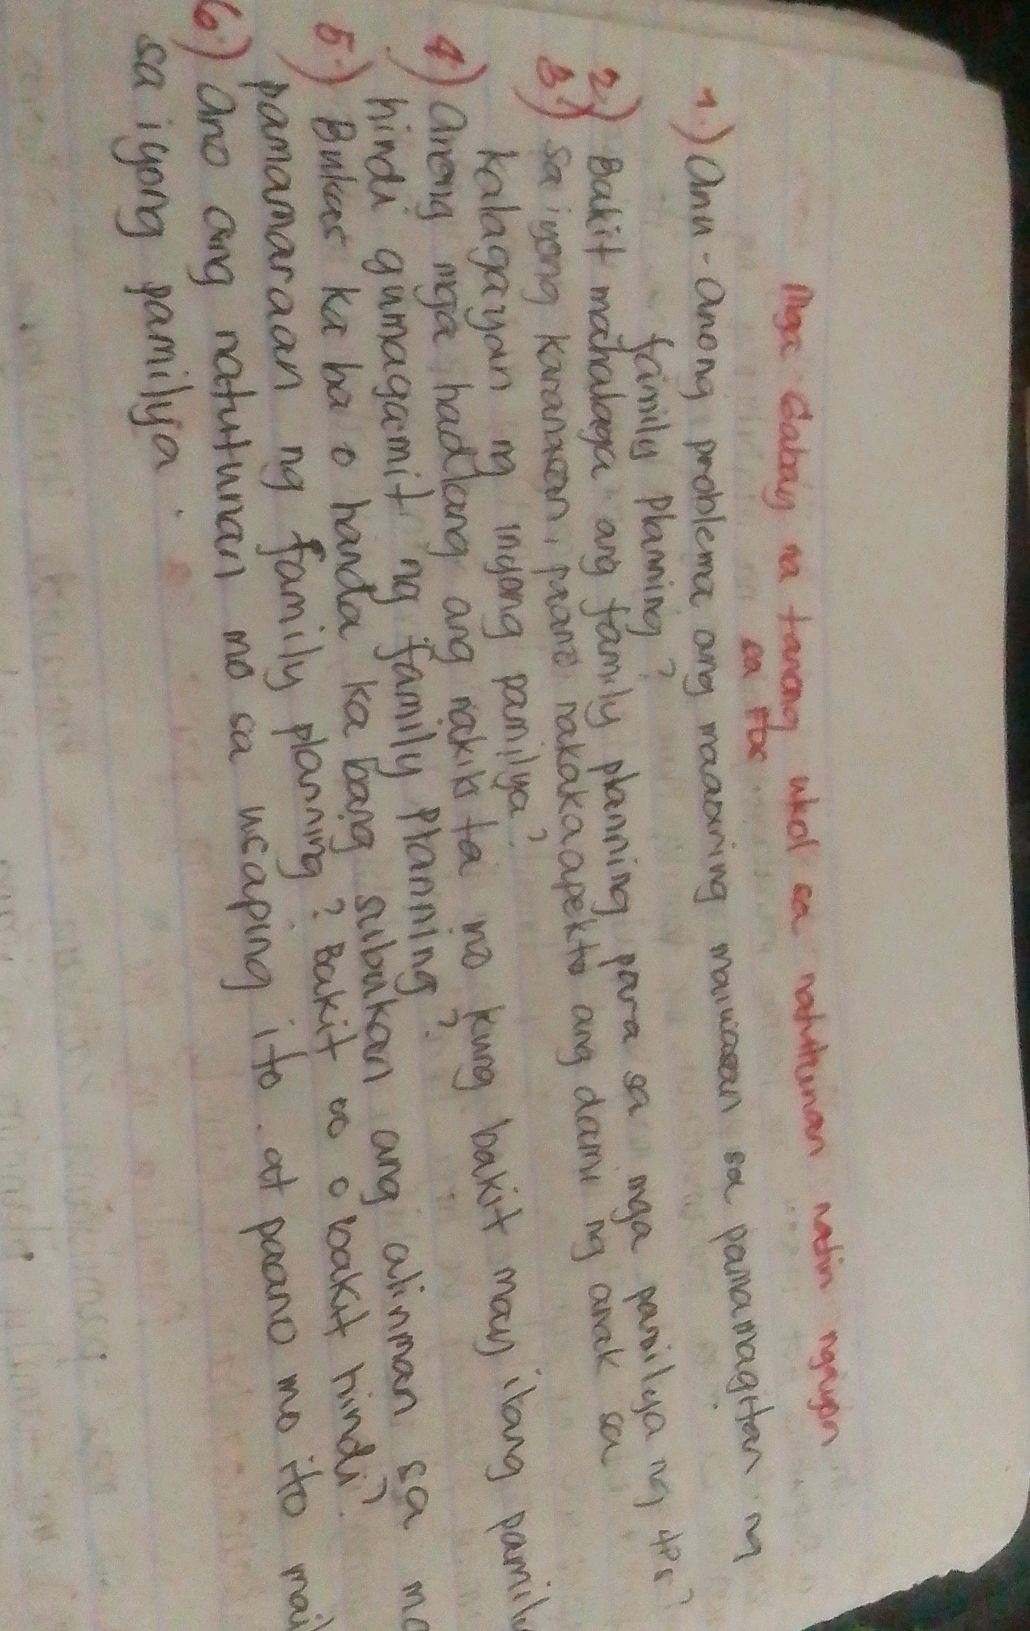 Mga Gabay na tanong ukol sa natutunan natin ngayon
sa FDS
1.) Anu-anong problema ang maaaring maiwasan sa pamamagitan ng
family planning?
2.) Bakit mahalaga ang family planning para sa mga pamilya ng 4Ps?
3.) sa iyong karanasan, paano nakakaapekto ang dami ng anak sa
kalagayan ng inyong pamilya?
4) Anong mga hadlang ang nakikita mo kung bakit may ilang pamily
hindi gumagamit ng family planning?
5.) Bukas ka ba o handa ka bang subukan ang alinman sa
pamamaraan ng family planning? Bakit oo o bakit hindi?
6.) Ano ang natutunan mo sa usaping ito at paano mo ito
sa iyong pamilya.